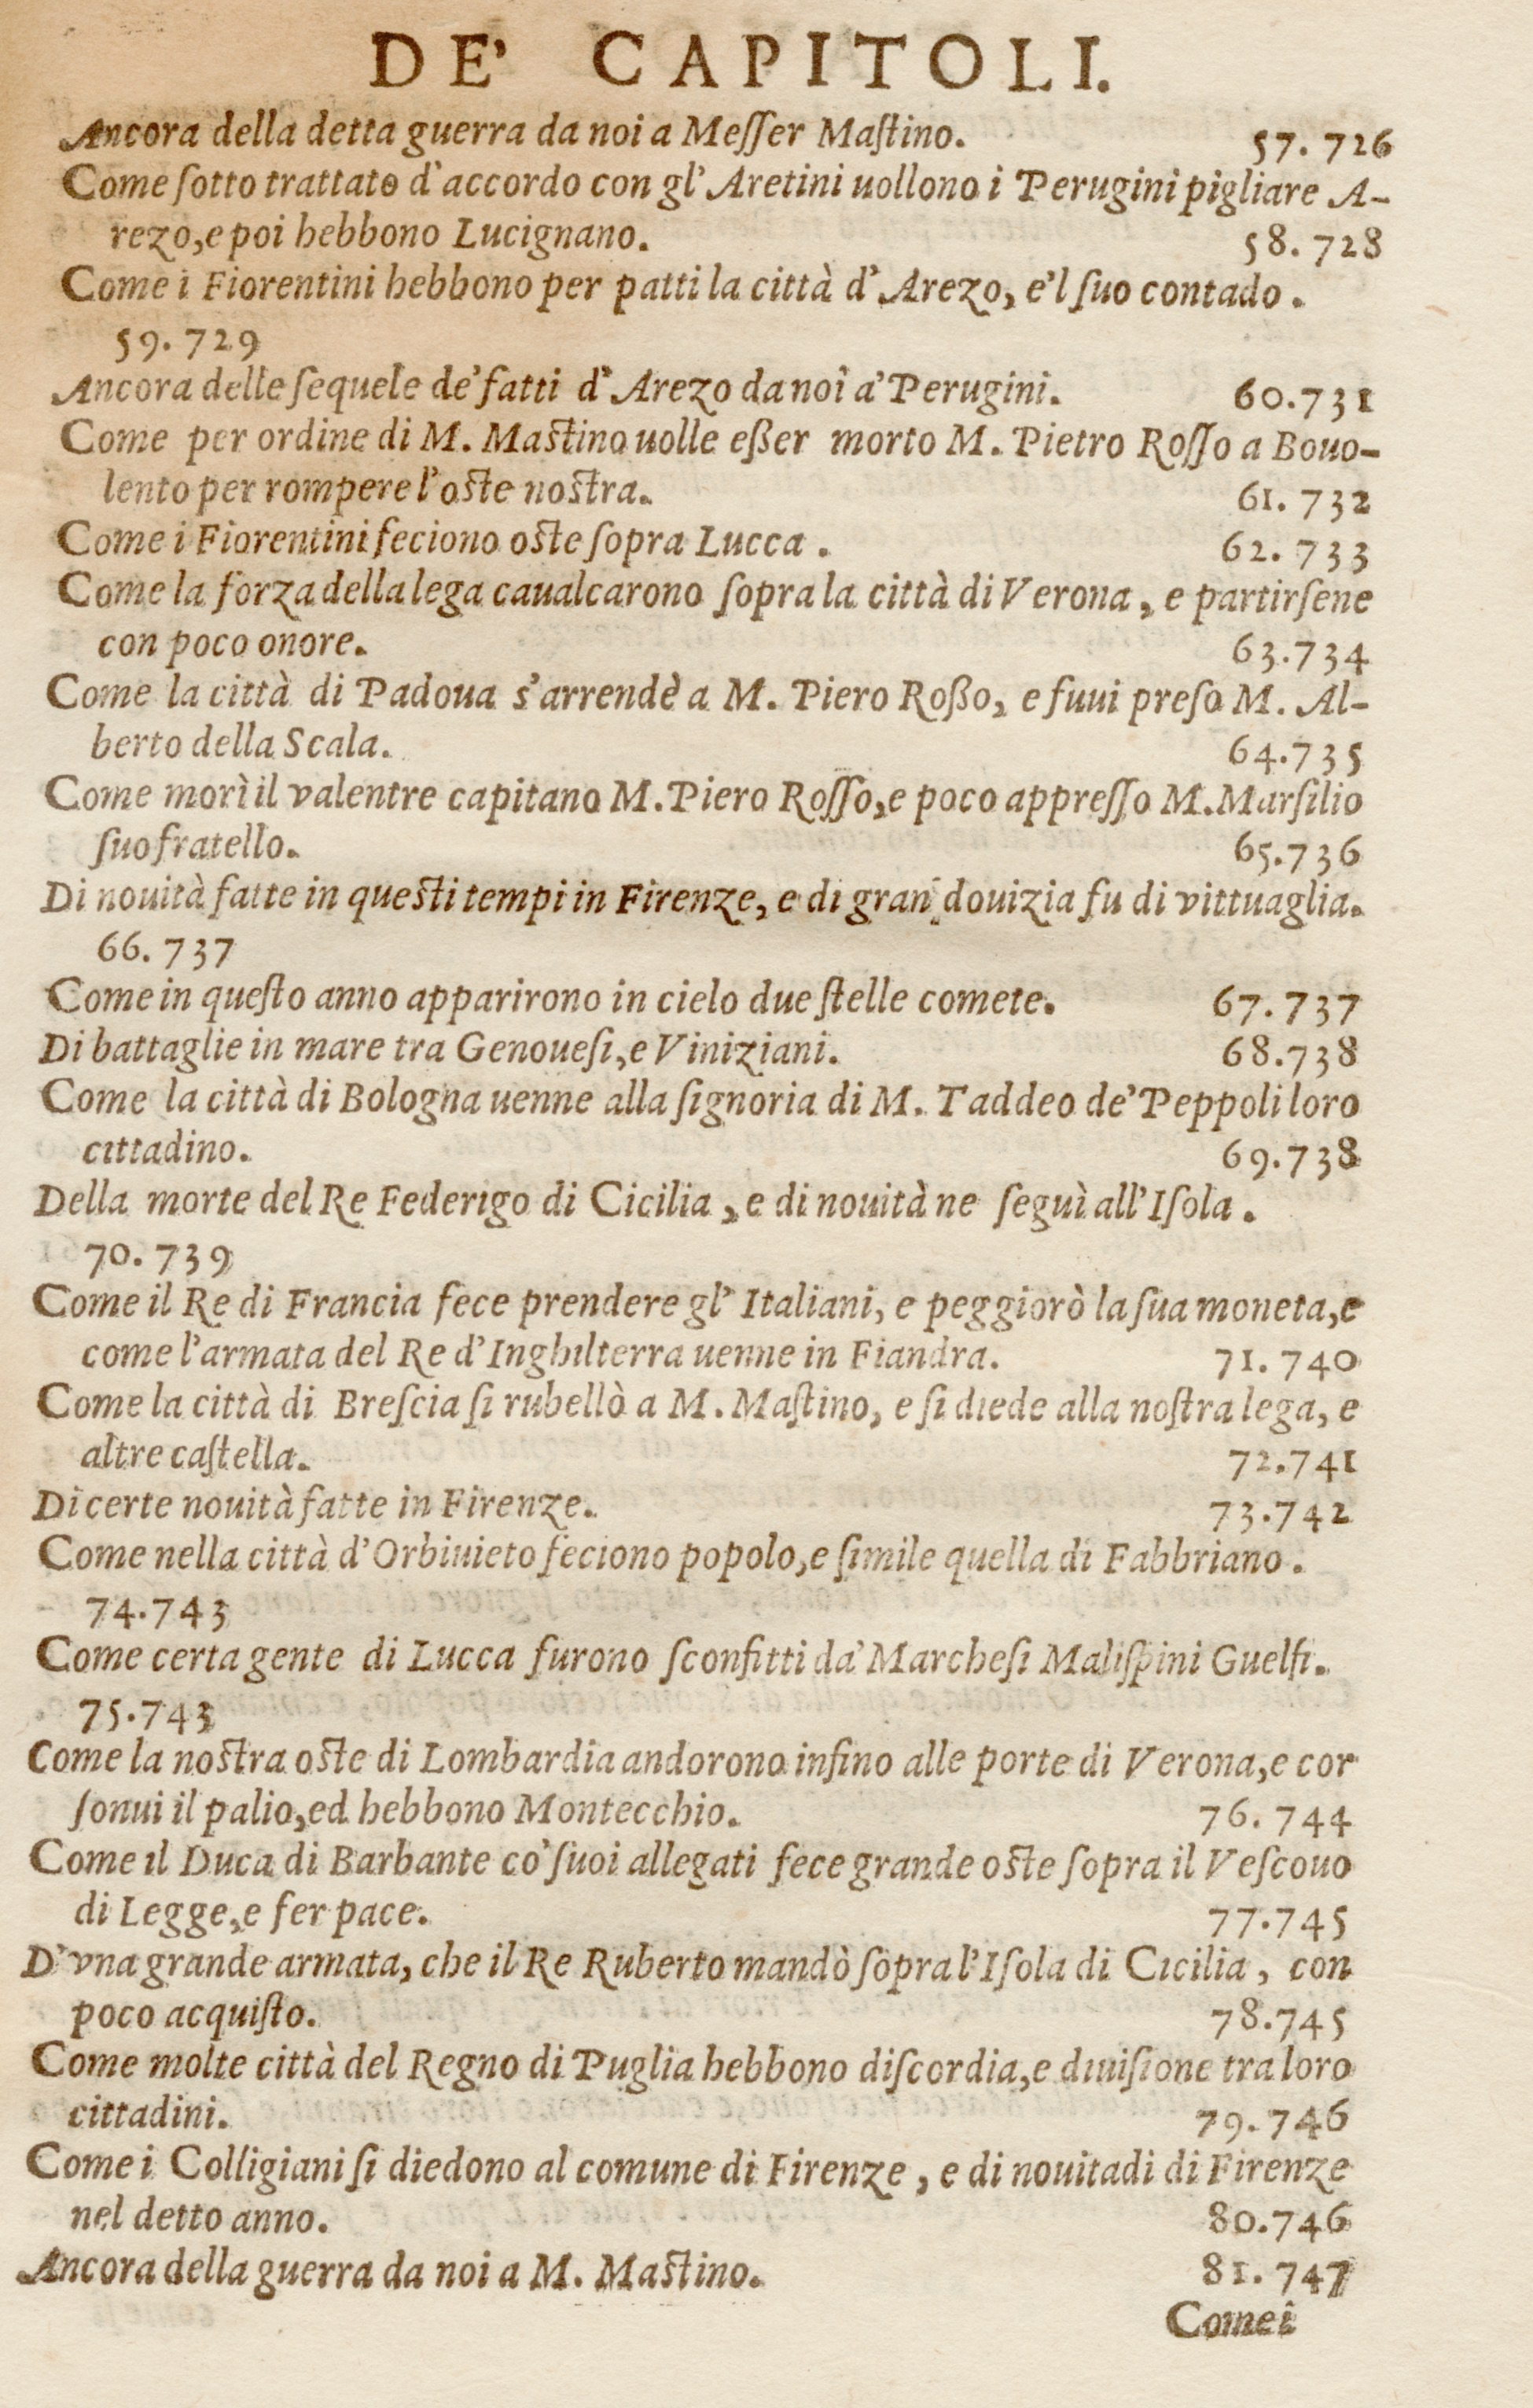 DE' CAPITOLI.
Ancora della detta guerra da noi a Meſſer Maſtino. 57. 726
Come ſotto trattato d'accordo con gl'Aretini uollono i Perugini pigliare A-
rezo, e poi hebbono Lucignano. 58. 728
Come i Fiorentini hebbono per patti la città d'Arezo, e'l ſuo contado.
59. 729
Ancora delle ſequele de' fatti d'Arezo da noi a' Perugini. 60. 731
Come per ordine di M. Maſtino uolle eßer morto M. Pietro Roſſo a Bouo-
lento per rompere l'oſte noſtra. 61. 732
Come i Fiorentini feciono oſte ſopra Lucca. 62. 733
Come la forza della lega caualcarono ſopra la città di Verona, e partirſene
con poco onore. 63. 734
Come la città di Padoua s'arrendè a M. Piero Roßo, e fuui preſo M. Al-
berto della Scala. 64. 735
Come morì il valentre capitano M. Piero Roſſo, e poco appreſſo M. Marſilio
ſuo fratello. 65. 736
Di nouità fatte in queſti tempi in Firenze, e di gran douizia fu di vittuaglia.
66. 737
Come in queſto anno apparirono in cielo due ſtelle comete. 67. 737
Di battaglie in mare tra Genoueſi, e Viniziani. 68. 738
Come la città di Bologna uenne alla ſignoria di M. Taddeo de' Peppoli loro
cittadino. 69. 738
Della morte del Re Federigo di Cicilia, e di nouità ne ſeguì all'Iſola.
70. 739
Come il Re di Francia fece prendere gl'Italiani, e peggiorò la ſua moneta, e
come l'armata del Re d'Inghilterra uenne in Fiandra. 71. 740
Come la città di Breſcia ſi rubellò a M. Maſtino, e ſi diede alla noſtra lega, e
altre caſtella. 72. 741
Di certe nouità fatte in Firenze. 73. 742
Come nella città d'Orbiuieto feciono popolo, e ſimile quella di Fabbriano.
74. 743
Come certa gente di Lucca furono ſconfitti da' Marcheſi Maliſpini Guelfi.
75. 743
Come la noſtra oſte di Lombardia andorono infino alle porte di Verona, e cor
ſonui il palio, ed hebbono Montecchio. 76. 744
Come il Duca di Barbante co' ſuoi allegati fece grande oſte ſopra il Veſcouo
di Legge, e fer pace. 77. 745
D'vna grande armata, che il Re Ruberto mandò ſopra l'Iſola di Cicilia, con
poco acquiſto. 78. 745
Come molte città del Regno di Puglia hebbono diſcordia, e diuiſione tra loro
cittadini. 79. 746
Come i Colligiani ſi diedono al comune di Firenze, e di nouitadi di Firenze
nel detto anno. 80. 746
Ancora della guerra da noi a M. Maſtino. 81. 747
Come i